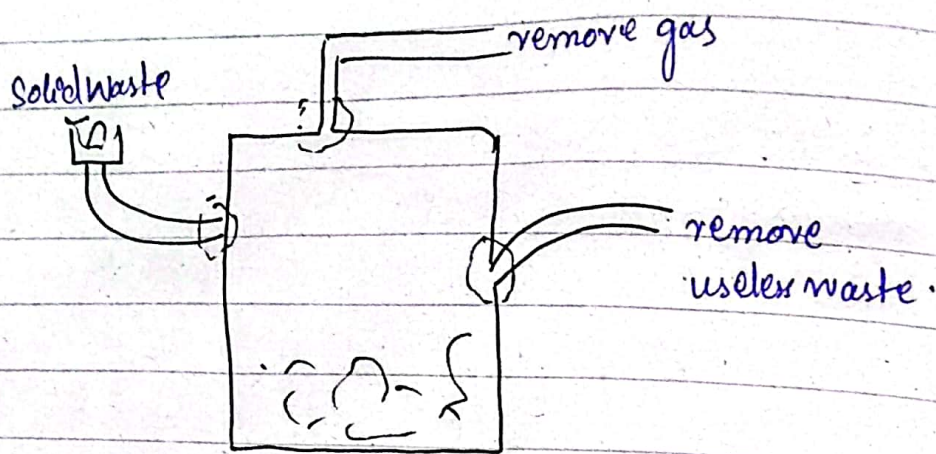 remove gas
Solid waste
remove
useless waste.